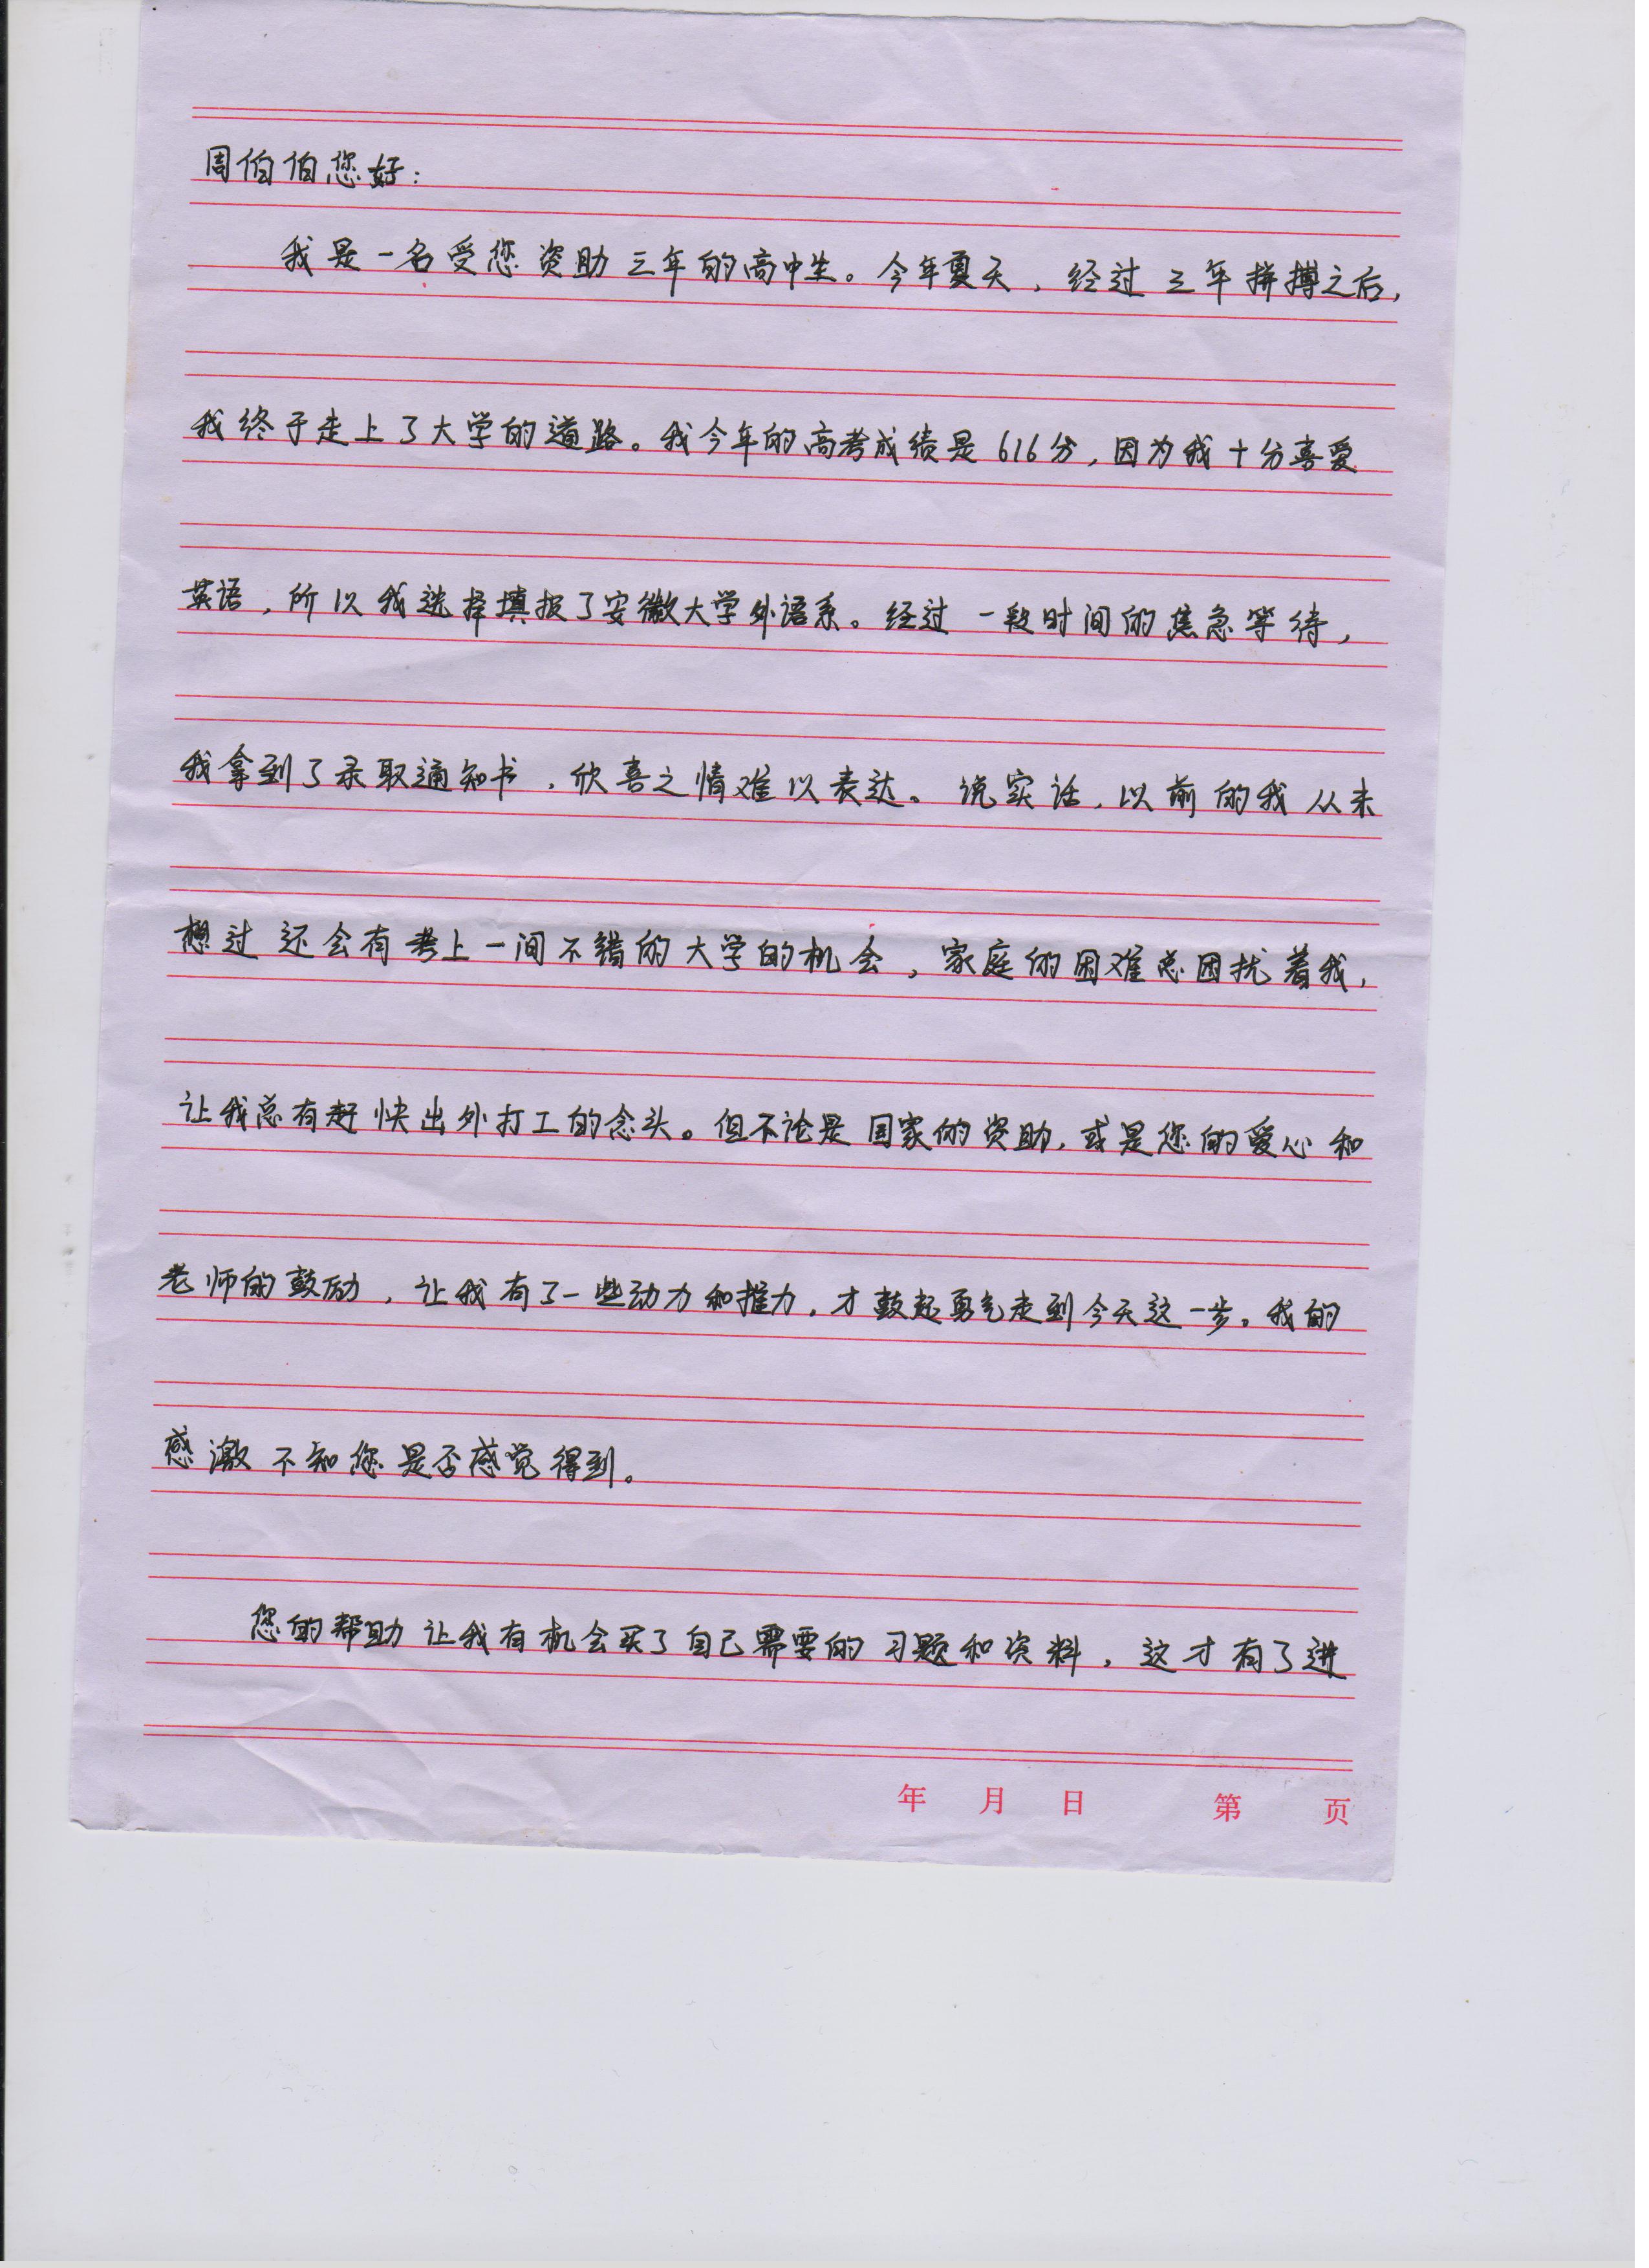 周伯伯您好：
我是一名受您资助三年的高中生。今年夏天，经过三年拼搏之后，
我终于走上了大学的道路。我今年的高考成绩是616分，因为我十分喜爱
英语，所以我选择填报了安徽大学外语系。经过一段时间的焦急等待，
我拿到了录取通知书，欣喜之情难以表达。说实话，以前的我从未
想过还会有考上一间不错的大学的机会，家庭的困难总困扰着我，
让我总有赶快出外打工的念头。但不论是国家的资助，或是您的爱心和
老师的鼓励，让我有了一些动力和推力，才鼓起勇气走到今天这一步。我的
感激不知您是否感觉得到。
您的帮助让我有机会买了自己需要的习题和资料，这才有了进
年 月 日 第 页